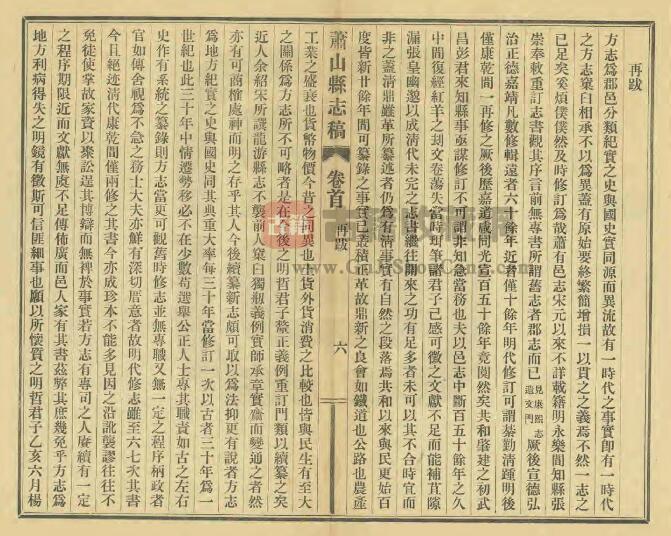 再跋
方志為郡邑分類紀實之史與國史實同源而異流故有一時代之事實卽有一時代
之方志窠臼相承不以為異蓋有原始要終繁簡增損一以貫之之義焉不然一志之
已足矣奚煩僕僕然及時修訂為哉蕭有邑志宋元以來不詳載籍明永樂間知縣張
崇奉敕重訂志書觀其序言前無專書所謂舊志者郡志而已見康熙志遺文門厥後宣德弘
治正德嘉靖凡數修輯遠者六十餘年近者僅十餘年明代修訂可謂綦勤清踵明後
僅康乾間一再修之厥後歷嘉道咸同光宣百五十餘年竟闃然矣共和肇建之初武
昌彭君來知縣事亟謀修訂不可謂非知急當務也夫以邑志中斷百五十餘年之久
中間復經紅羊之刦文卷蕩失當時珥筆諸君子已感可徵之文獻不足而能補苴隙
漏張皇幽邈以成清代未完之志書繼往開來之功有足多者未可以其不合時宜而
非之蓋清鼎雖革所纂述者仍為有清事實有自然之段落焉共和以來與民更始百
度皆新廿餘年間可纂錄之事實已叢積正革故鼎新之良會如鐵道也公路也農產
蕭山縣志稿 卷首 再跋 六
工業之盛衰也貨幣物價今昔之同異也外貨外貨消費之比較也皆與民生有至大
之關係為方志所不可略者是在今後之明哲君子釐正義例重訂門類以續纂之矣
近人余紹宋所譔龍游縣志不襲前人窠臼獨瓶義例實師承章實齋而變通之者然
亦有可商榷處神而明之存乎其人今後續纂新志頗可取以為法抑更有說者方志
為地方紀實之史與國史同其典重大率每三十年當修訂一次以古者三十年為一
世紀也此三十年中情遷勢移必不在少數苟選舉公正人士專其職責如古之左右
史作有系統之纂錄則方志當更可觀舊時修志並無專職又無一定之程序柄政者
官如傳舍視為不急之務士大夫亦鮮有深切厝意者故明代修志雖至六七次其書
今且絕迹清代康乾間僅兩修之其書今亦成珍本不能多見因之沿訛襲謬往往不
免徒使掌故家資以聚訟逞其博辯而無裨於事實若方志有專司之人賡續有一定
之程序期限近而文獻無虞不足傳佈廣而邑人家有其書茲弊其庶幾免乎方志為
地方利病得失之明鏡有徵斯可信匪細事也願以所懷質之明哲君子乙亥六月楊
古籍收藏网
www.GuJiShouCang.com